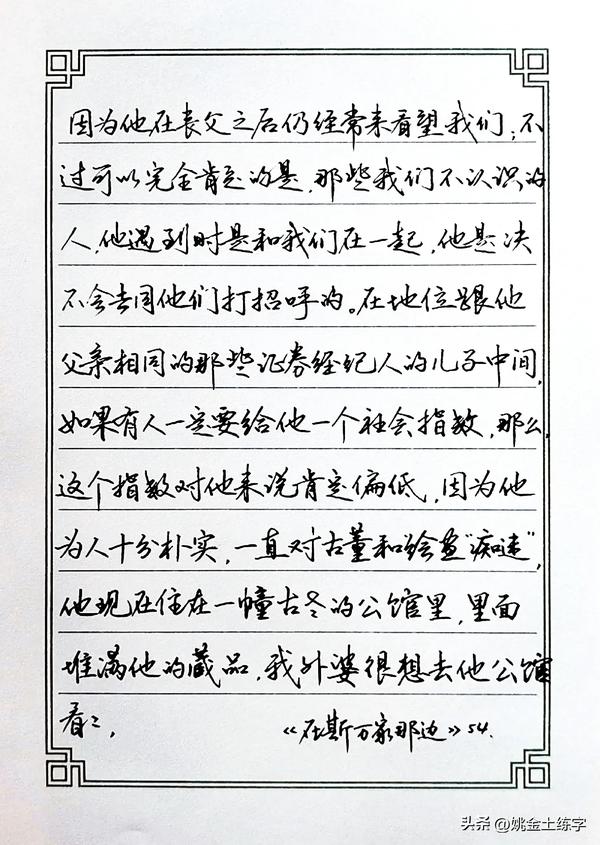 因为他在丧父之后仍经常来看望我们；不
过可以完全肯定的是，那些我们不认识的
人，他遇到时是和我们在一起，他是决
不会去同他们打招呼的。在地位跟他
父亲相同的那些证券经纪人的儿子中间，
如果有人一定要给他一个社会指数，那么，
这个指数对他来说肯定偏低，因为他
为人十分朴实，一直对古董和绘画“痴迷”，
他现在住在一幢古老的公馆里，里面
堆满他的藏品，我外婆很想去他公馆
看看，
《在斯万家那边》54.
头条 @姚金土练字